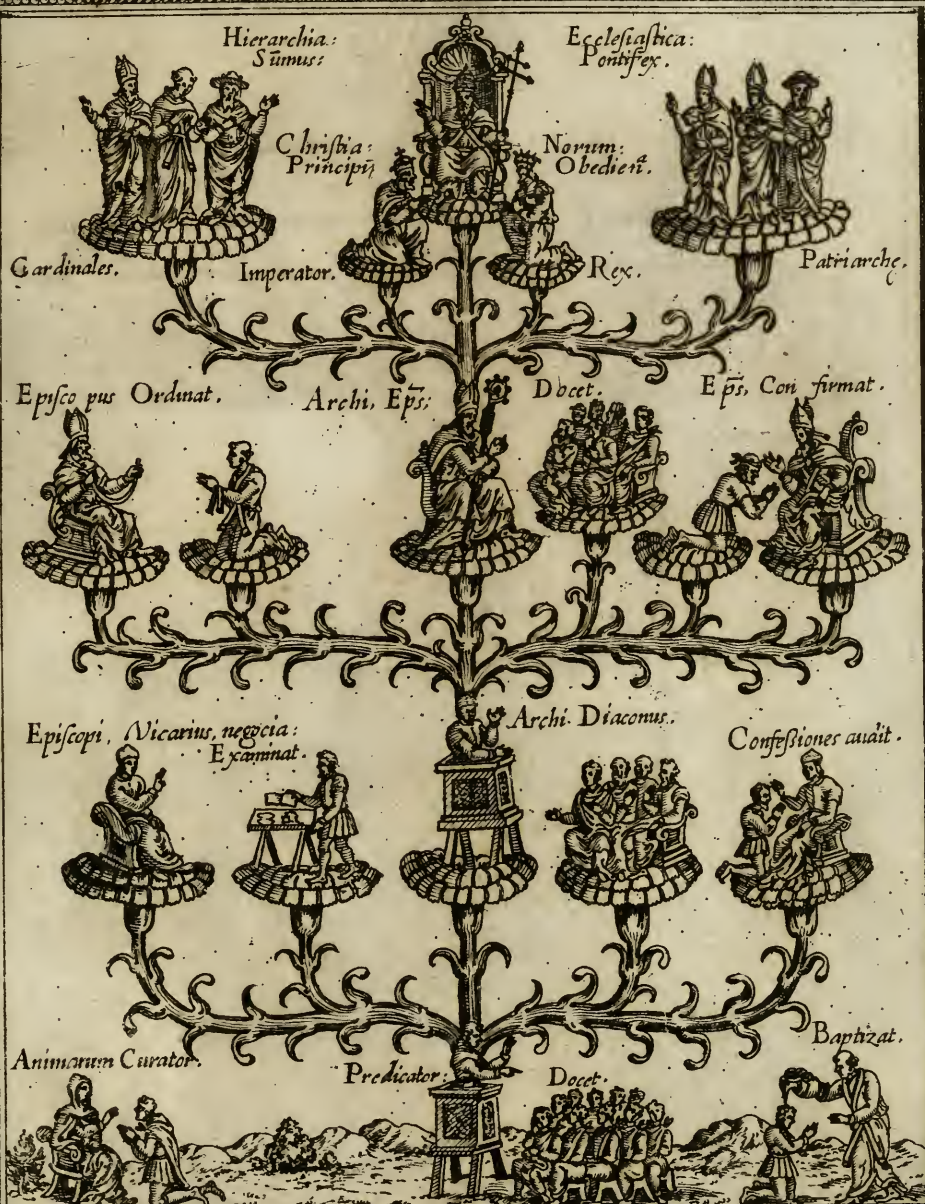 Hierarchia: Ecclesiaſtica:
Sum̄us: Pontifex.
Chriſtia: Norum:
Principū Obedien.
Cardinales. Imperator. Rex. Patriarchę.
Epiſco pus Ordinat. Archi, Ep̄s; Docet. Ep̄s, Con firmat.
Epiſcopi, Vicarius, negocia: Archi. Diaconus. Confeſſiones audit.
Examinat.
Animarum Curator. Predicator: Docet. Baptizat.